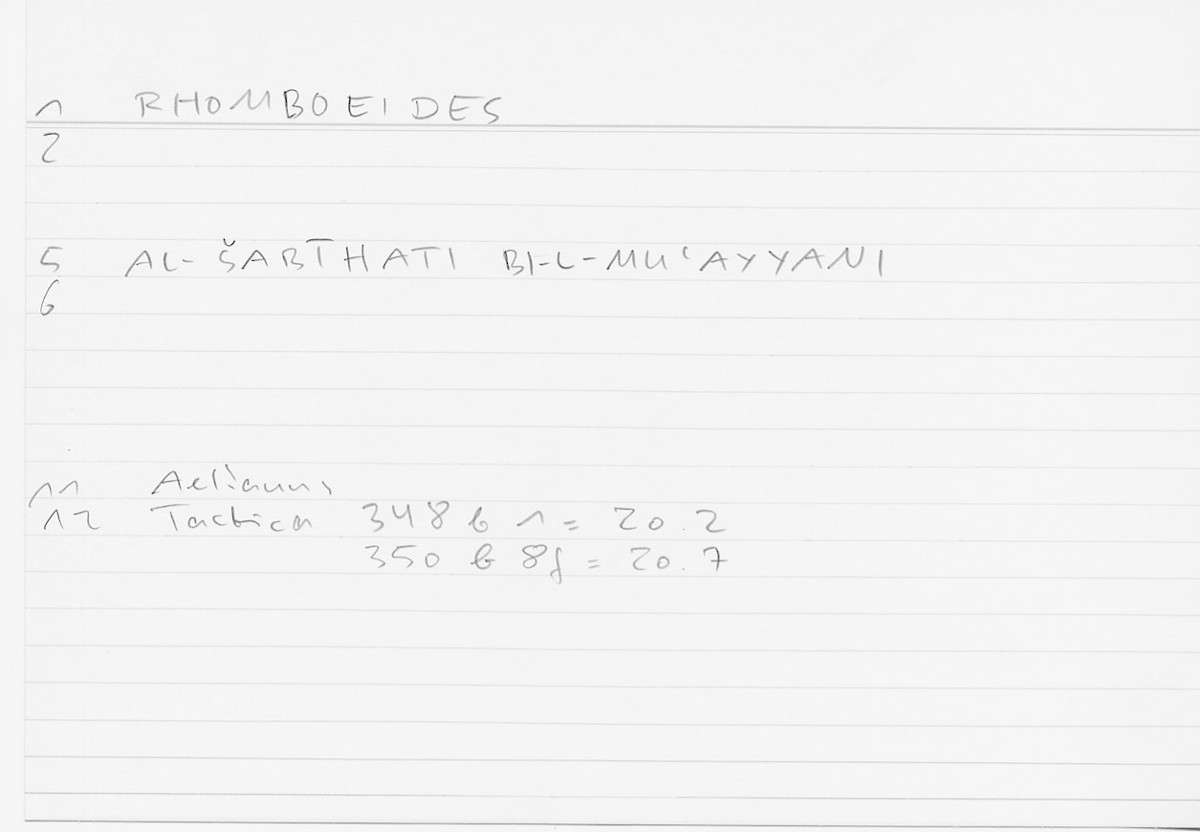 1 RHOMBOEIDES
2
5 AL-ŠABĪHATI BI-L-MUʿAYYANI
6
11 Aelianus
12 Tactica 348 b 1 = 20.2
350 b 8f = 20.7